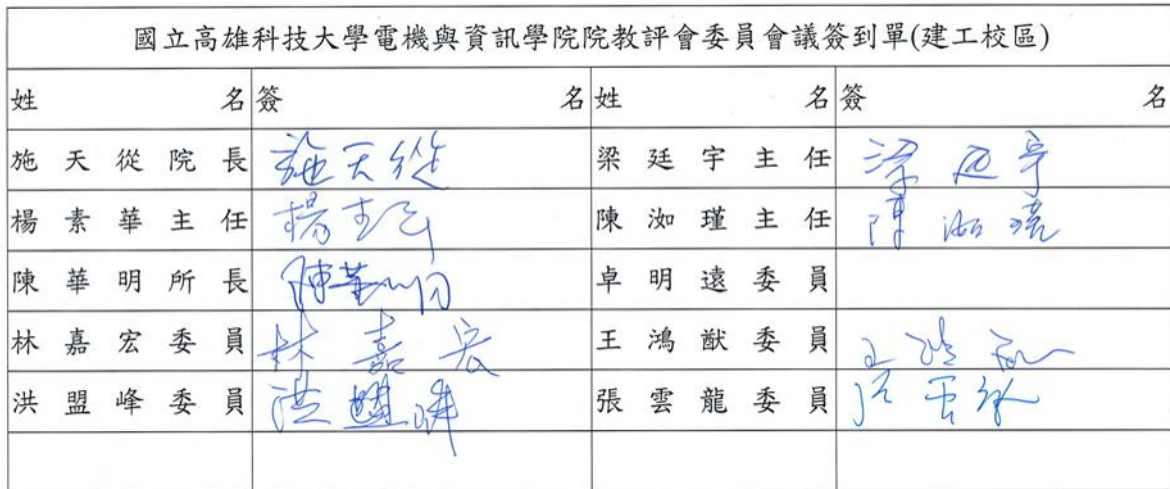 國立高雄科技大學電機與資訊學院院教評會委員會議簽到單(建工校區)
姓名 簽名 姓名 簽名
施天從院長 施天從 梁廷宇主任 梁廷宇
楊素華主任 楊素華 陳洳瑾主任 陳洳瑾
陳華明所長 陳華明 卓明遠委員
林嘉宏委員 林嘉宏 王鴻猷委員
洪盟峰委員 洪盟峰 張雲龍委員 張雲龍